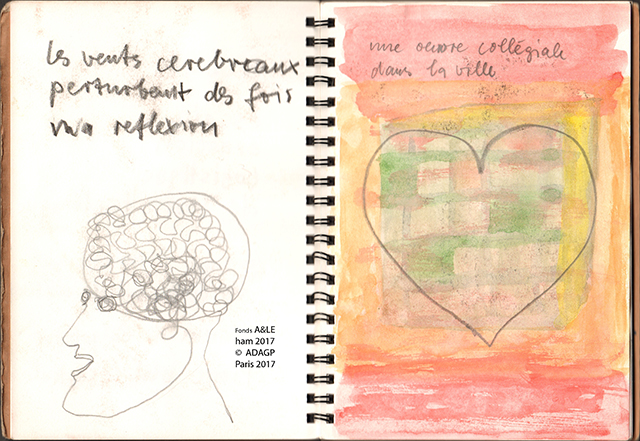 les vents cerebreaux
perturbent des fois
ma reflexion
Fonds A&LE
ham 2017
© ADAGP
Paris 2017
une oeuvre collégiale
dans la ville